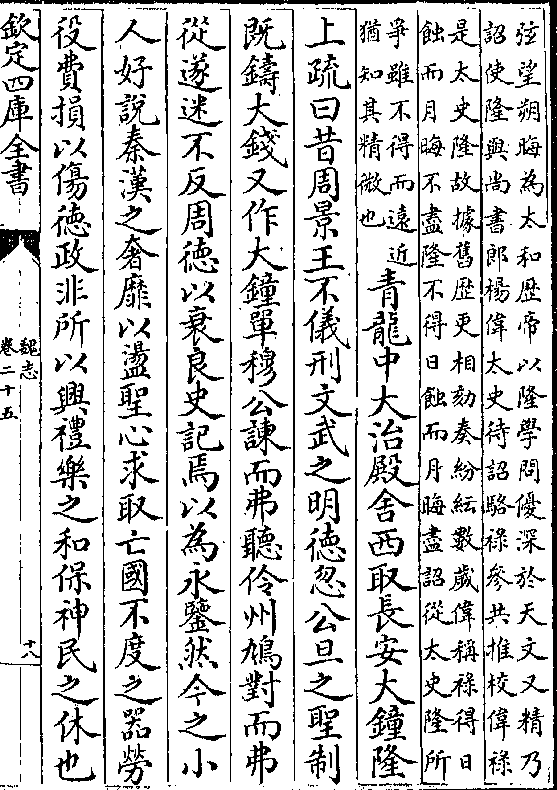 弦望朔晦為太和歴帝以隆學問優深於天文又精乃
詔使隆與尚書郎楊偉太史待詔駱祿參共推校偉祿
是太史隆故據舊歴更相劾奏紛紜數歲偉稱祿得日
蝕而月晦不盡隆不得日蝕而月晦盡詔從太史隆所
爭雖不得而遠近
猶知其精微也
青龍中大治殿舍西取長安大鐘隆
上疏曰昔周景王不儀刑文武之明徳忽公旦之聖制
既鑄大錢又作大鐘單穆公諫而弗聽伶州鳩對而弗
從遂迷不反周徳以衰良史記焉以為永鑒然今之小
人好說秦漢之奢靡以盪聖心求取亡國不度之器勞
役費損以傷徳政非所以興禮樂之和保神民之休也
欽定四庫全書
魏志
卷二十五
十八